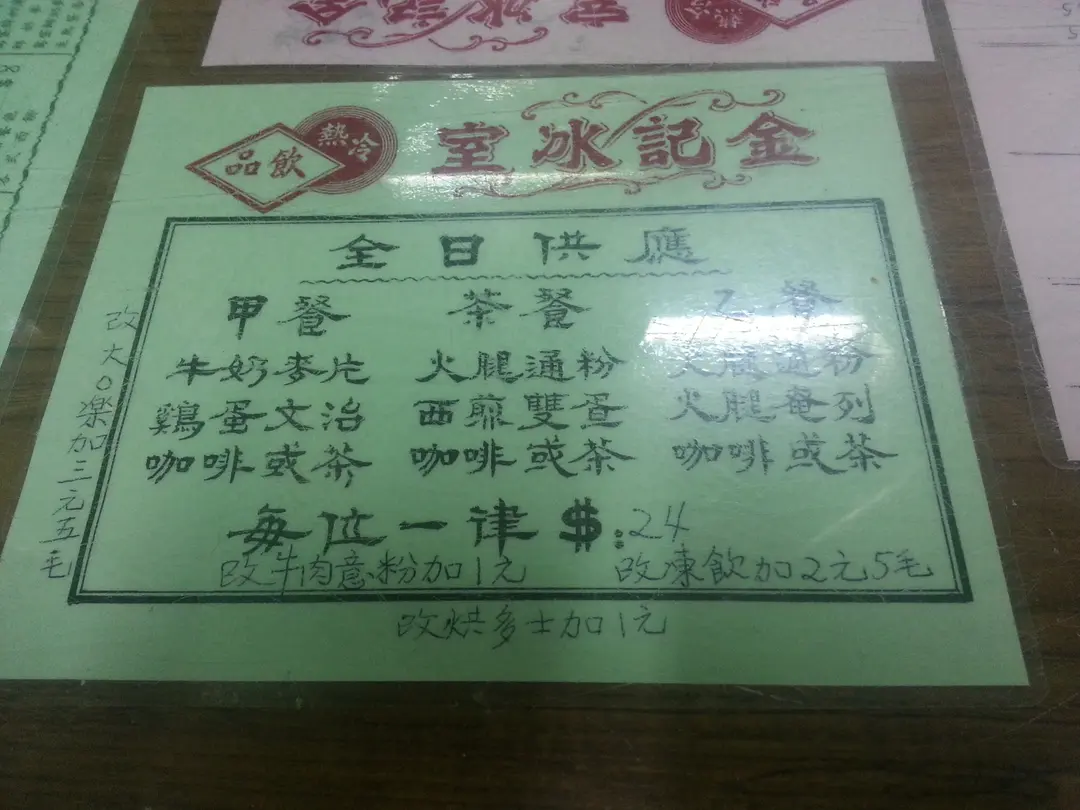 金記冰室
冷熱
飲品
全日供應
甲餐 茶餐 乙餐
牛奶麥片 火腿通粉 火腿通粉
鷄蛋文治 西煎雙蛋 火腿奄列
咖啡或茶 咖啡或茶 咖啡或茶
每位一律$:24
改牛肉意粉加1元 改凍飲加2元5毛
改烘多士加1元
改大O楽加三元五毛